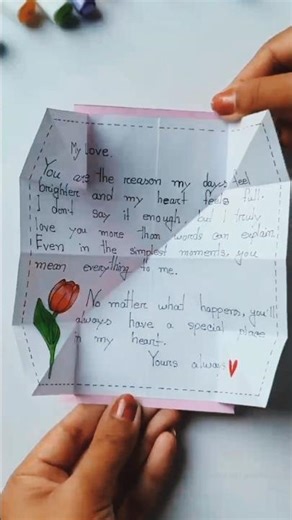 My love,
You are the reason my days feel
brighter and my heart feels full.
I don't say it enough, but I truly
love you more than words can explain.
Even in the simplest moments, you
mean everything to me.
No matter what happens, you'll
always have a special place
in my heart.
Yours always